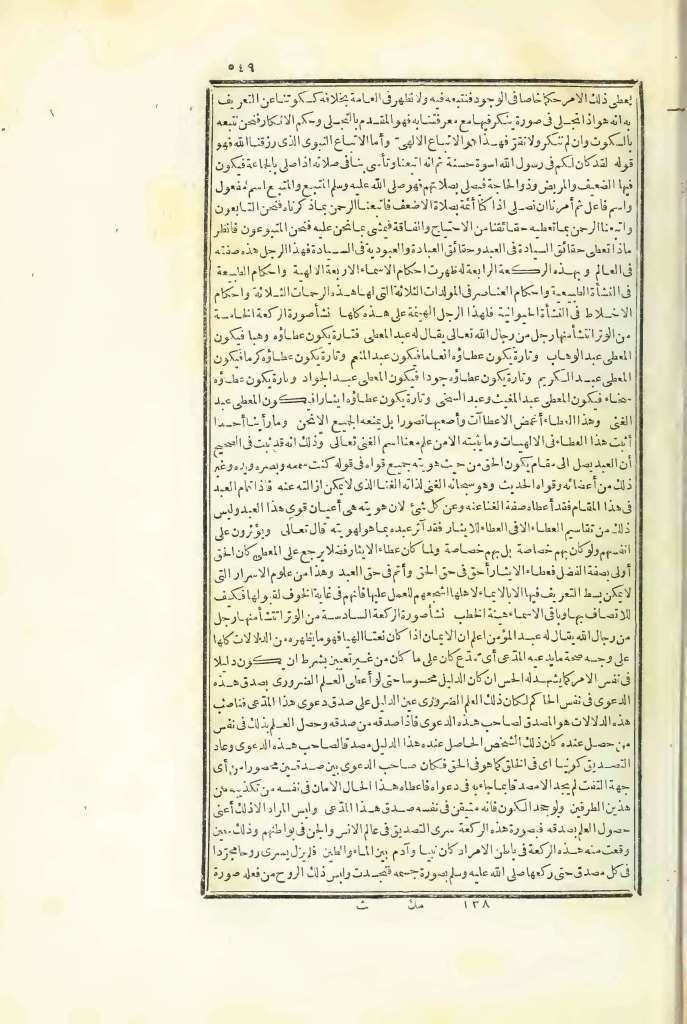 ٥٤٩
يعطى ذلك الامر حكما خاصا فى الوجود فنتبعه فيه ولا تظهر فى العامة بخلافه كسكوتنا عن التعريف
به انه هو اذ اتجلى فى صورة ينكر فيها مع معرفتنا به فهو المقدم بالتجلى وحكم الانكار فنحن نتبعه
بالسكوت وان لم ننكر ولا نقر فهذا هو الاتباع الالهىّ وأما الاتباع النبوى الذى رزقنا الله فهو
قوله لقد كان لكم فى رسول الله اسوة حسنة ثم انه اتبعنا وتأسى بنا فى صلاته اذا صلى بالجماعة فيكون
فيها الضعيف والمريض وذو الحاجة فيصلى بصلاتهم فهو صلى الله عليه وسلم المتبع والمتبع اسم مفعول
واسم فاعل ثم أمرنا ان نصلى اذا كنا أئمة بصلاة الاضعف فاتبعنا الرحمن بما ذكرناه فنحن التابعون
واتبعنا الرحمن بما تعطيه حقائقنا من الاحتياج والفاقة فيمشى بما نحن عليه فنحن المتبوعون فانظر
ماذا تعطى حقائق السيادة فى العبد وحقائق العبادة والعبودية فى السيادة فهذا الرجل هذه صفته
فى العالم وبهذه الركعة الرابعة له ظهرت احكام الاسماء الاربعة الالهية واحكام الطبيعة
فى النشأة الطبيعية واحكام العناصر فى المولدات الثلاثة التى لها هذه الرحمات الثلاثة واحكام
الاخلاط فى النشأة الحيوانية فلهذا الرجل الهيمنة على هذه كلها نشأ صورة الركعة الخامسة
من الوتر انتشأ منها رجل من رجال الله تعالى يقال له عبد المعطى فتارة يكون عطاؤه وهبا فيكون
المعطى عبد الوهاب وتارة يكون عطاؤه انعاما فيكون عبد المنعم وتارة يكون عطاؤه كرما فيكون
المعطى عبد الكريم وتارة يكون عطاؤه جودا فيكون المعطى عبد الجواد وتارة يكون عطاؤه
سخاء فيكون المعطى عبد المغيث وعبد السخى وتارة يكون عطاؤه ايثارا فيكون المعطى عبد
الغنى وهذا العطاء أغمض الاعطاآت وأصعبها تصورا بل يمنعه الجميع الا نحن وما رأينا أحدا
أثبت هذا العطاء فى الالهيات وما يثبته الا من علم معنا اسم الغنى تعالى وذلك انه قد ثبت فى الصحيح
أن العبد يصل الى مقام يكون الحق من حيث هويته جميع قواه فى قوله كنت سمعه وبصره ويده وغير
ذلك من أعضائه وقواه الحديث وهو سبحانه الغنى لذاته الغنا الذى لا يمكن ازالته عنه فاذا تمام العبد
فى هذا المقام فقد أعطاه صفة الغنا عنه وعن كل شئ لان هويته هى أعيان قوى هذا العبد وليس
ذلك من تقاسيم العطاء الا فى العطاء للايثار فقد آثر عبده بما هو لهويته قال تعالى ويؤثرون على
انفسهم ولو كان بهم خصاصة بل بهم خصاصة ولما كان عطاء الايثار فضلا يرجع على المعطى كان الحق
أولى بصفة الفضل فعطاء الايثار أحق فى حق الحق وأتم فى حق العبد وهذا من علوم الاسرار التى
لا يمكن بسط التعريف فيها الا بالايماء لاهلها اشجعهم للعمل عليها فانهم فى غاية الخوف لقبولها فكيف
للاتصاف بها وباقى الاسماء هينة الخطب نشأ صورة الركعة السادسة من الوتر انتشأ منها رجل
من رجال الله يقال له عبد المؤمن اعلم ان الايمان اذا كان نعتا الهيا فهو ما يظهره من الدلالات كلها
على وجه صحة ما يدعيه المدّعى أىّ مدّع كان على ما كان من غير تعيين بشرط ان يكون دليلا
فى نفس الامر كما يشهد له الحس ان كان الدليل محسوسا حتى لو أعطى العلم الضرورى بصدق هذه
الدعوى فى نفس الحاكم لكان ذلك العلم الضرورى عين الدليل على صدق دعوى هذا المدّعى فناصب
هذه الدلالات هو المصدق لصاحب هذه الدعوى فاذا صدقه من صدقه وحصل العلم بذلك فى نفس
من حصل عنده كان ذلك الشخص الحاصل عنده هذا الدليل مصدقا لصاحب هذه الدعوى وعاد
التصديق كونيا اى فى الخلق كما هو فى الحق فكان صاحب الدعوى بين صدقين محصورا من أى
جهة التفت لم يجد الا مصدقا بما جاء به فى دعواه فاعطاه هذا الحال الامان فى نفسه من تكذيبه من
هذين الطرفين ولو جحد الكون فانه متيقن فى نفسه صدق هذا المدّعى وليس المراد الا ذلك أعنى
حصول العلم بصدقه فبصورة هذه الركعة سرى التصديق فى عالم الانس والجن فى بواطنهم وذلك حين
وقعت منه هذه الركعة فى باطن الامر اذ كان نبيا وآدم بين الماء والطين فلم يزل يسرى روحا مجرّدا
فى كل مصدق حتى ركعها صلى الله عليه وسلم بصورة جسمه فتجسدت وليس ذلك الروح من فعله صورة
١٣٨ مك ث